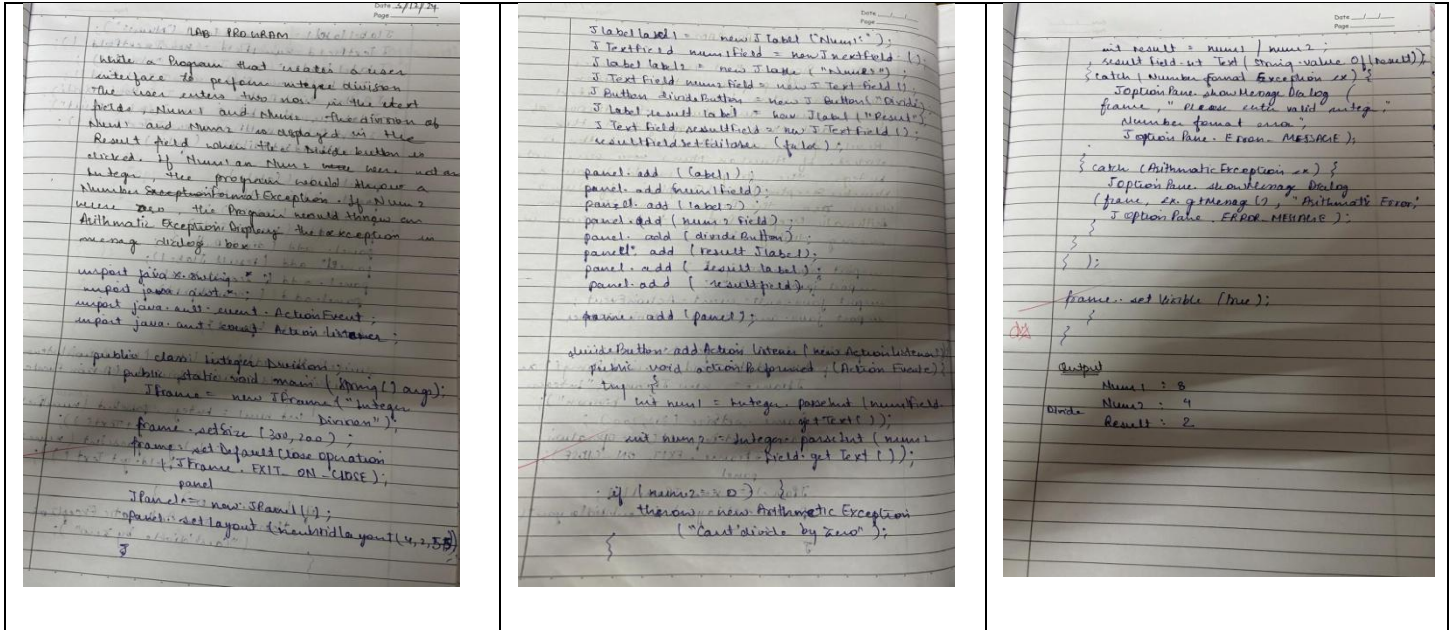 Date 5/12/24
Page
LAB PROGRAM
Write a Program that creates a user
interface to perform integer division
The user enters two nos. in the text
fields, Num1 and Num2. The division of
Num1 and Num2 is displayed in the
Result field when the Divide button is
clicked. If Num1 an Num2 were not an
Integer, the program would throw a
Number Format Exception. If Num2
were zero the Program would throw an
Arithmatic Exception Display the exception in
message dialog box
import javax.swing.*;
import java.awt.*;
import java.awt.event.ActionEvent;
import java.awt.event.ActionListener;
public class Integer Division
public static void main (String [] args);
JFrame = new JFrame ("Integer
Division");
frame.setSize (300, 200);
frame.setDefault Close Operation
(JFrame.EXIT_ON_CLOSE);
panel
JPanel = new JPanel ();
panel.set Layout (new GridLayout (4, 2, 5, 5));
}
Date
Page
Jlabel label1 = new Jlabel ("Num1:");
J Textfield num1Field = new JTextField ();
J label label2 = new Jlable ("Num2");
J Text Field num2Field = new J Text Field ();
J Button divideButton = new J Button ("Divide");
J Label result label = new Jlabel ("Result");
J Text field resultField = new J TextField ();
resultField setEditable (false);
panel.add (label1);
panel.add num1Field);
panel.add (label2);
panel.add (num2 Field)
panel.add (divideButton);
panel. add (result Jlabel);
panel.add ( result label);
panel.add ( resultfield);
frame. add (panel);
divideButton.add Action Listener (new ActionListener()
public void action Performed (Action Event e) {
try {
int num1 = Integer. parseInt (num1Field.
getText ());
int num2 = Integer. parseInt (num2
Field.get Text ());
if (num2 == 0) {
throw new Arithmetic Exception
("Cant divide by Zero");
}
Date
Page
int result = num1 / num2;
result field.set Text (String.value Of (result));
} catch (Number format Exception ex) {
JoptionPane.showMessage Dialog (
frame, "Please enter valid integ."
Number format error",
JoptionPane. Error_MESSAGE);
} catch (Arithmatic Exception ex) {
JoptionPane. showMessage Dialog
(frame, ex.getMessag (), "Arithmatic Error,"
J OptionPane. ERROR_MESSAGE);
}
}
} );
frame. set Visible (true);
}
}
Output
Num1 : 8
Num2 : 4
Divide
Result : 2